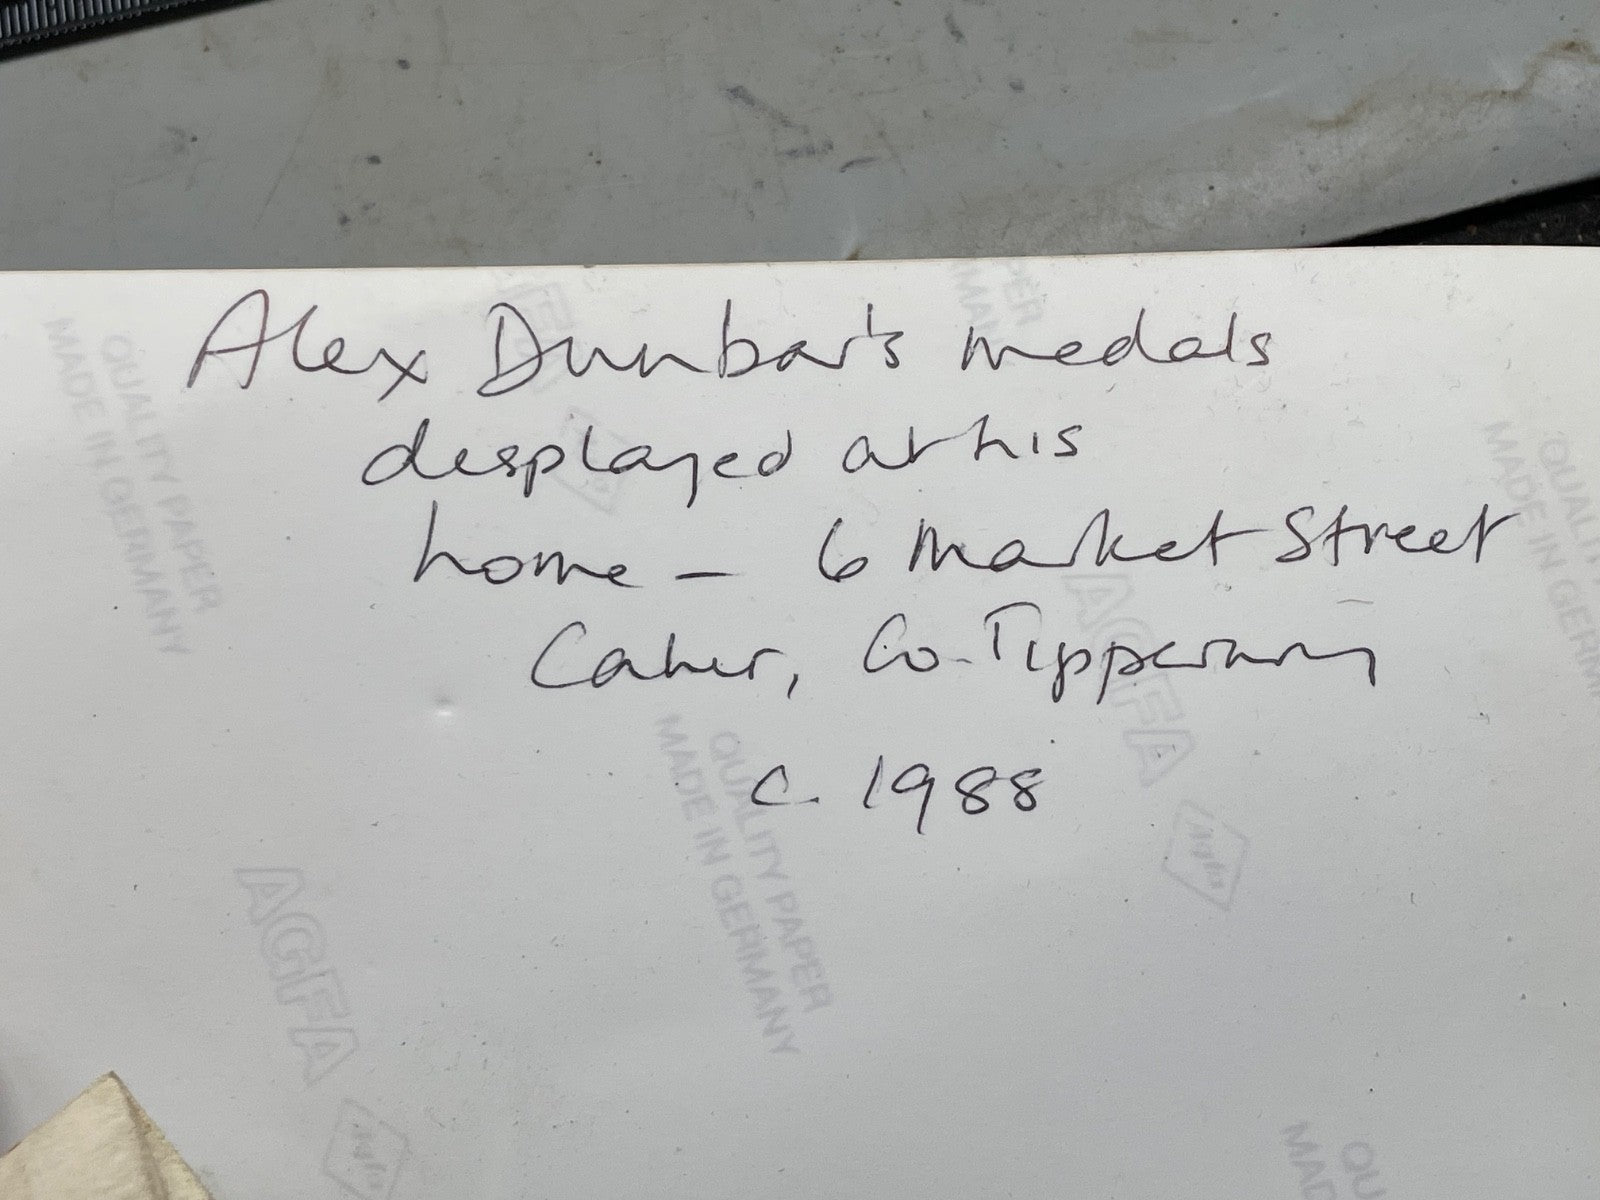 Alex Dunbar's medals
displayed at his
home – 6 Market Street
Caher, Co. Tipperary
c. 1988
QUALITY PAPER
MADE IN GERMANY
AGFA
QUALITY PAPER
MADE IN GERMANY
AGFA
Agfa
QUALITY PAPER
MADE IN GERMANY
AGFA
Agfa